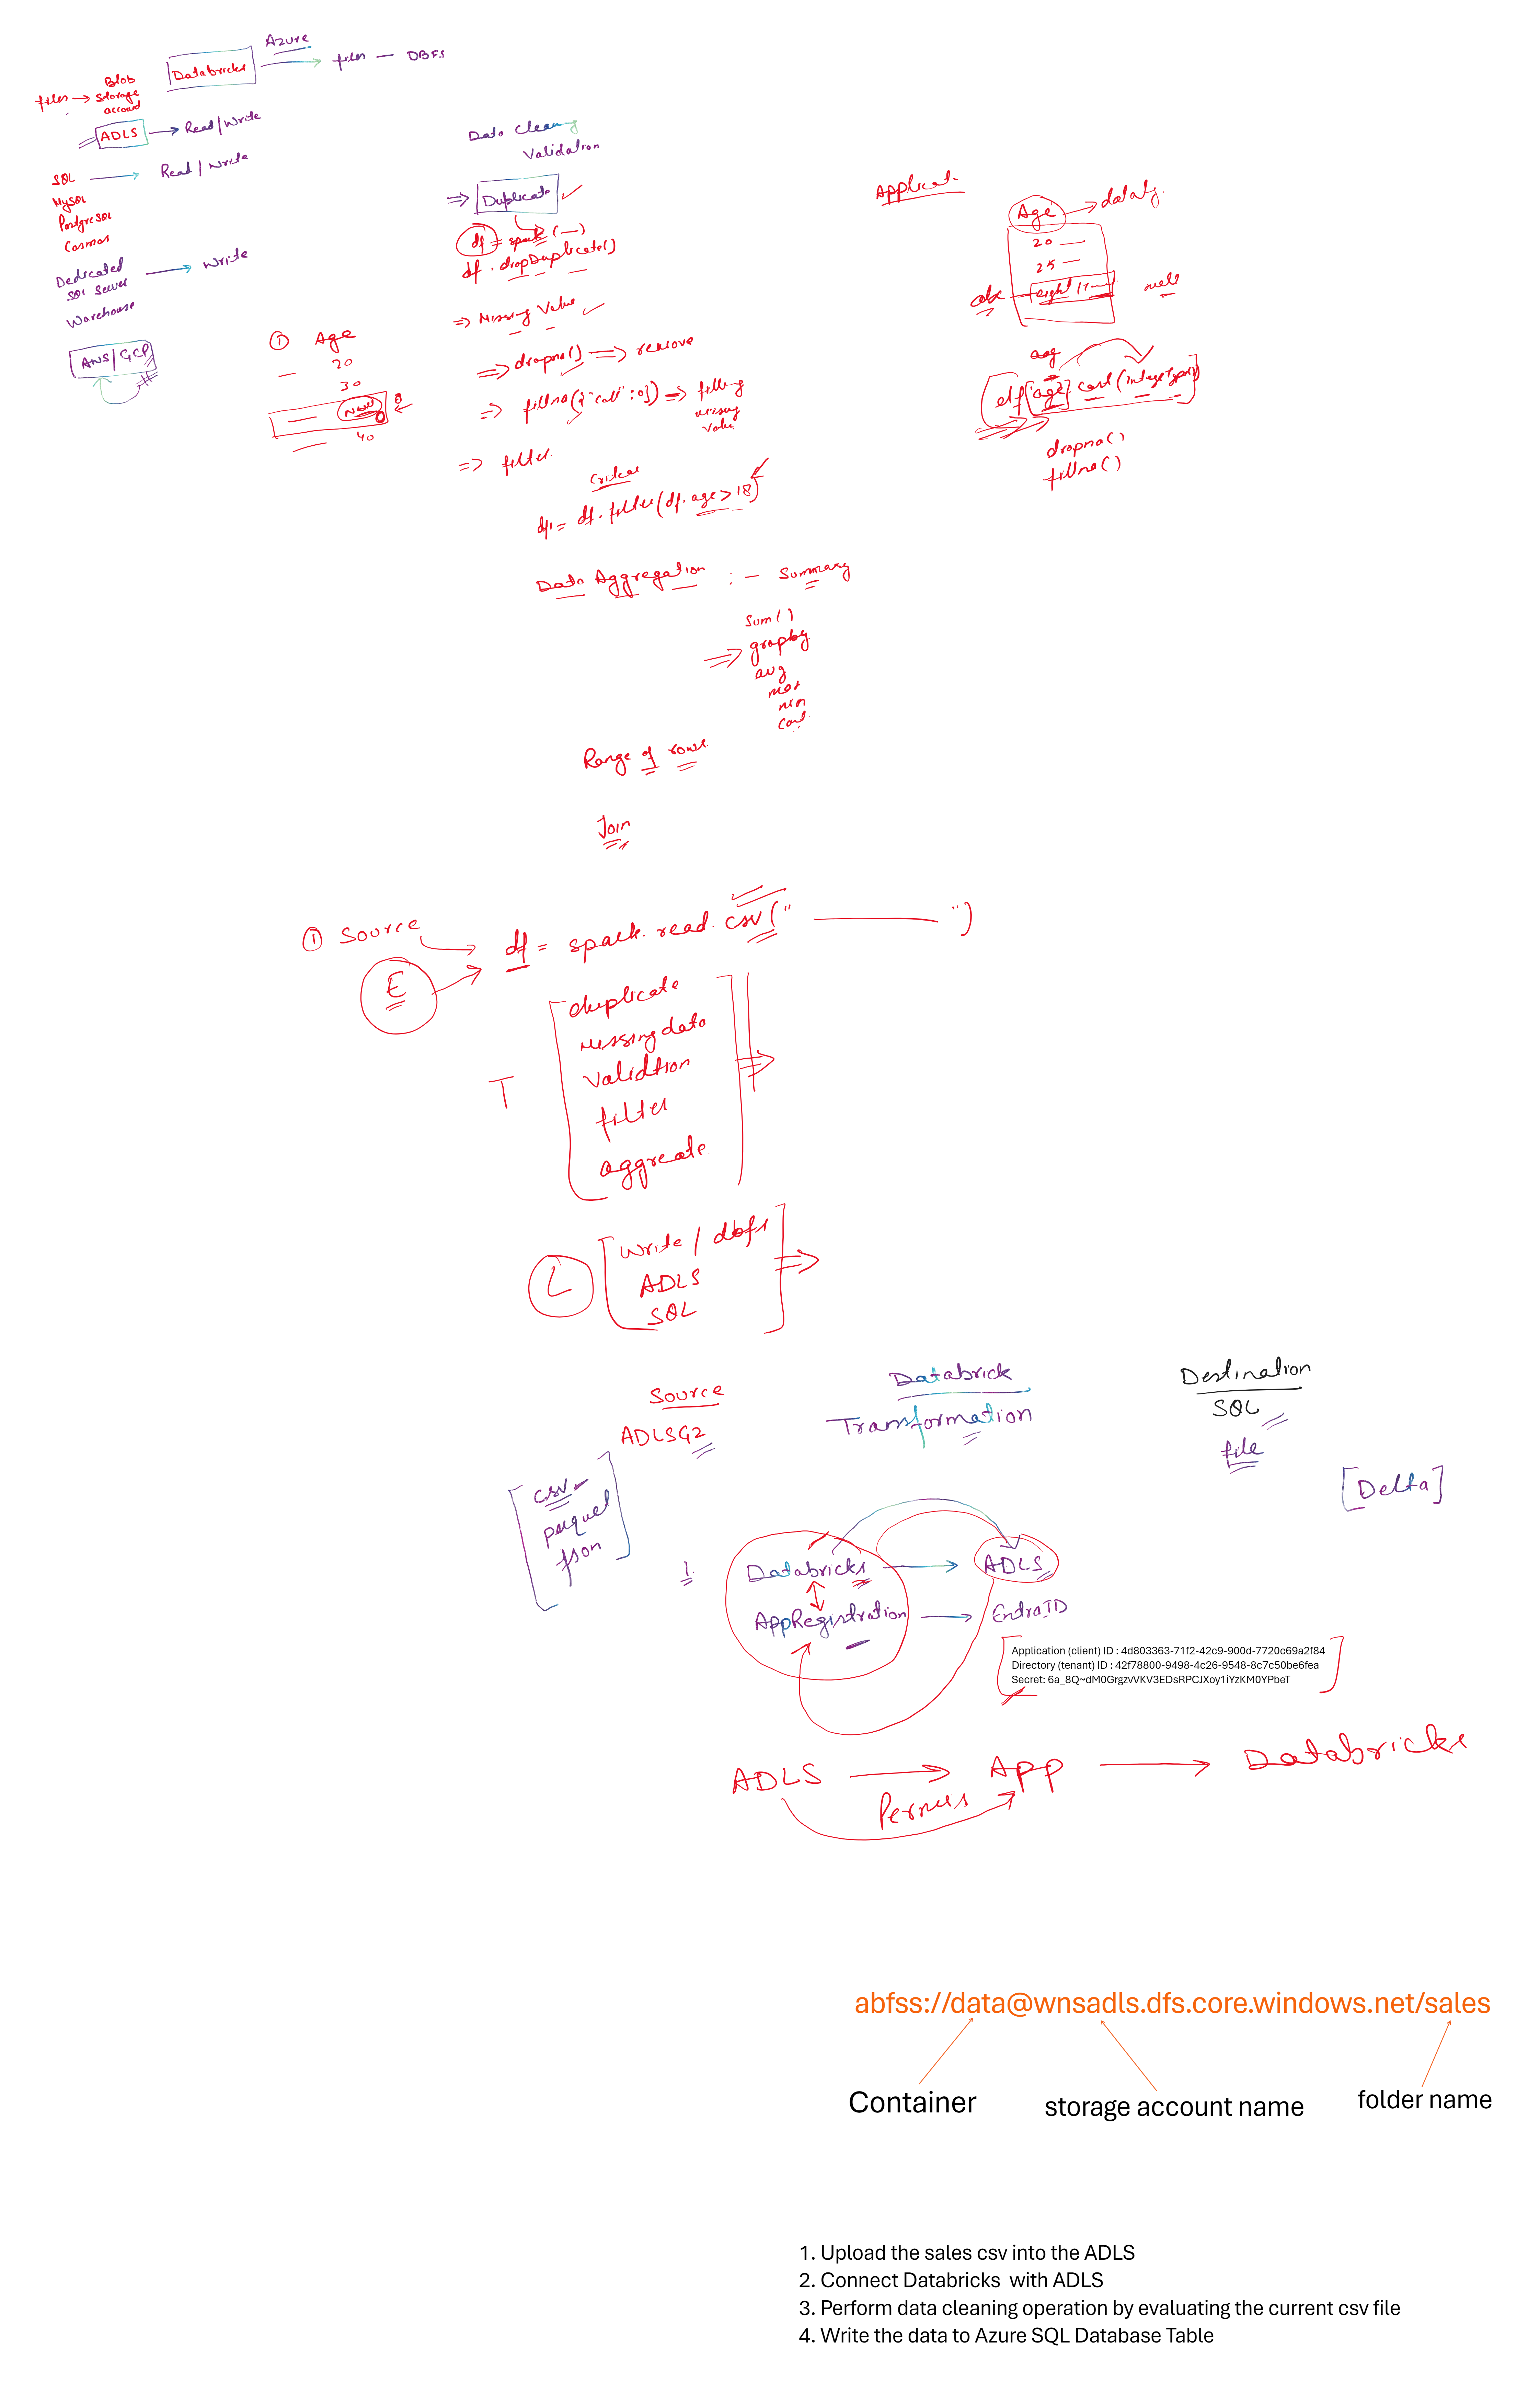 Azure
Databricks
files — DBFS
files → Blob
Storage
account
ADLS → Read/Write
SQL → Read / Write
MySQL
PostgreSQL
Cosmos
Dedicated → Write
SQL Server
Warehouse
AWS/GCP
① Age
20
30
Null
40
Data Cleang
Validation
⇒ Duplicate ✓
df = spark (—)
df . dropDuplicate()
⇒ Missing Value ✓
⇒ dropna() ⇒ remove
⇒ fillna({"col" : 0}) ⇒ filling
missing
value
⇒ filter
df1 = df . filter (df. age > 18)
Data Aggregation : — Summary
Sum ( )
⇒ groupby
avg
max
min
Range of rows
Join
Applicat.
Age
20 —
25 —
abc
null
df[age]. cast (IntegerType)
dropna()
fillna()
① Source
E
df = spark. read. csv (" ——— ")
T
duplicate
missing data
Validtion
filter
aggreate
L
Write / dbfs
ADLS
SQL
Source
ADLSG2
csv
parquet
json
Databrick
Transformation
Destination
SQL
file
[Delta]
1.
Databricks → ADLS
AppRegistration → EntraID
Application (client) ID : 4d803363-71f2-42c9-900d-7720c69a2f84
Directory (tenant) ID : 42f78800-9498-4c26-9548-8c7c50be6fea
Secret: 6a_8Q~dM0GrgzvVKV3EDsRPCJXoy1iYzKM0YPbeT
ADLS → App → Databricks
Permis
abfss://data@wnsadls.dfs.core.windows.net/sales
Container
storage account name
folder name
1. Upload the sales csv into the ADLS
2. Connect Databricks with ADLS
3. Perform data cleaning operation by evaluating the current csv file
4. Write the data to Azure SQL Database Table